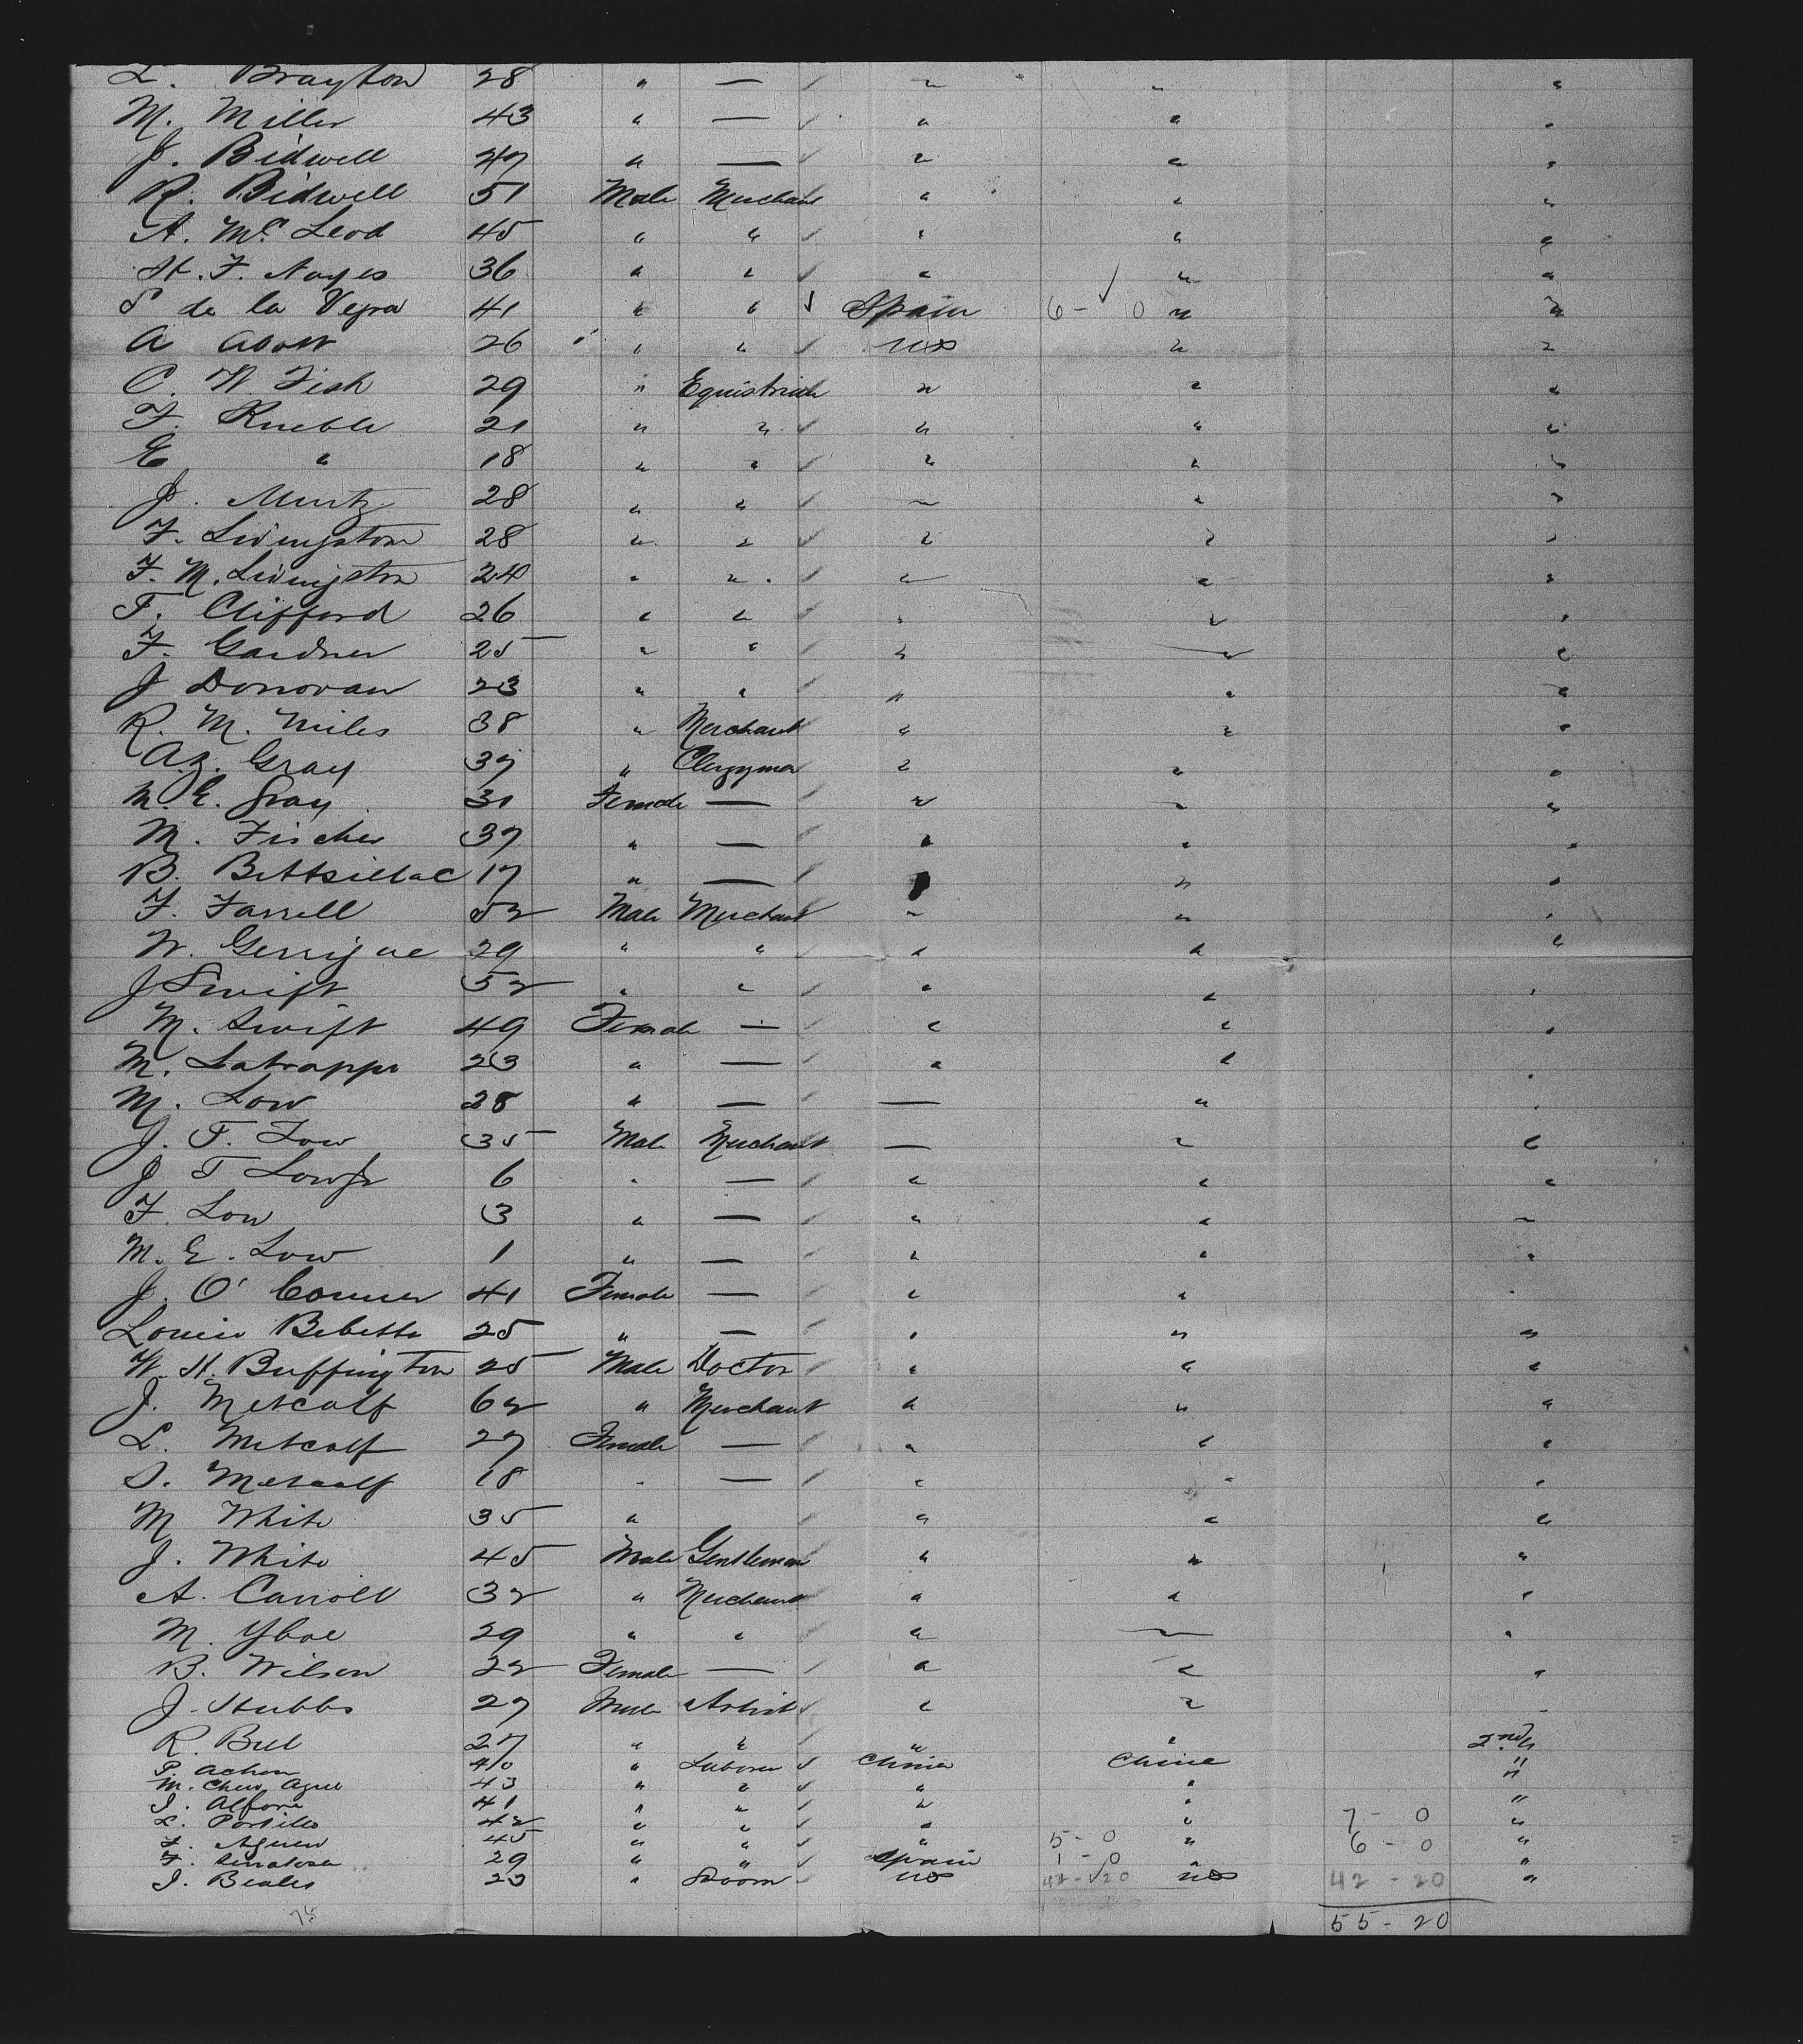 L. Brayton 28 " — " " "
M. Miller 43 " — " " "
J. Bidwell 47 " — " " "
R. Bidwell 51 Male Merchant " " "
A. Mc Leod 45 " " " " "
H. F. Noyes 36 " " " " "
P de la Vegra 41 " " Spain 6 - 0 " "
A Abott 26 " " US " "
C. W. Fish 29 " Equistrian " " "
F. Rueble 21 " " " " "
E " 18 " " " " "
J. Muntz 28 " " " " "
F. Livingston 28 " " " " "
F. M. Livingston 24 " " " " "
T. Clifford 26 " " " " "
F. Gardner 25 " " " " "
J Donovan 23 " " " " "
R. M. Miles 38 " Merchant " " "
A.Z. Gray 37 " Clergyman " " "
M. E. Gray 31 Female — " " "
M. Fischer 37 " — " " "
B. 17 " — " " "
F. Farrell 52 Male Merchant " " "
W. 29 " " " " "
J Swift 52 " " " " "
M. Swift 49 Female — " " "
M. Latrappe 23 " — " " "
M. Low 28 " — — " "
J. F. Low 35 Male Merchant — " "
J T Low Jr 6 " — " " "
F. Low 3 " — " " "
M. E. Low 1 " — " " "
J. O' Conner 41 Female — " " "
Louise Bebette 25 " — " " "
W. H. Buffington 25 Male Doctor " " "
J. Metcalf 62 " Merchant " " "
L. Metcalf 27 Female — " " "
S. Metcalf 18 " — " " "
M White 35 " " " "
J. White 45 Male Gentleman " " "
A. Carroll 32 " Merchant " " "
M. 29 " " " " "
B. Wilson 22 Female — " " "
J. Stubbs 27 Male Artist " "
R. Bell 27 " " " " 2nd "
P. Achon 40 " Laborer China China "
M. Chew 43 " " " " "
J. Alfone 41 " " " " "
L. Portillo 42 " " " " 7 - 0 "
F. Aguen 45 " " " 5 - 0 " 6 - 0 "
F. 29 " " Spain 1 - 0 " "
J. Beales 23 " US 42 - 20 US 42 - 20 "
55 - 20